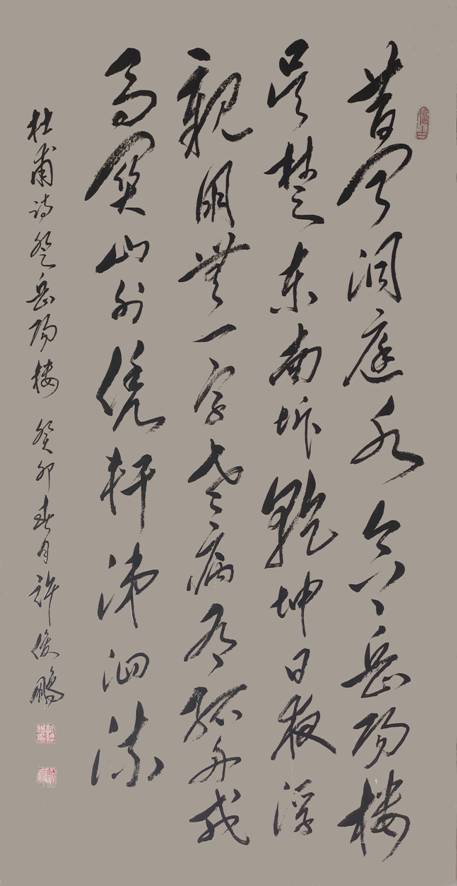 昔闻洞庭水今上岳阳楼
吴楚东南坼乾坤日夜浮
親朋無一字老病有孤舟戎
马关山北凭轩涕泗流
杜甫诗登岳阳楼 癸卯春月許俊鹏